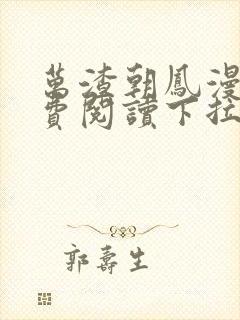 萬渣朝鳳漫
費閱讀下拉
郭壽生